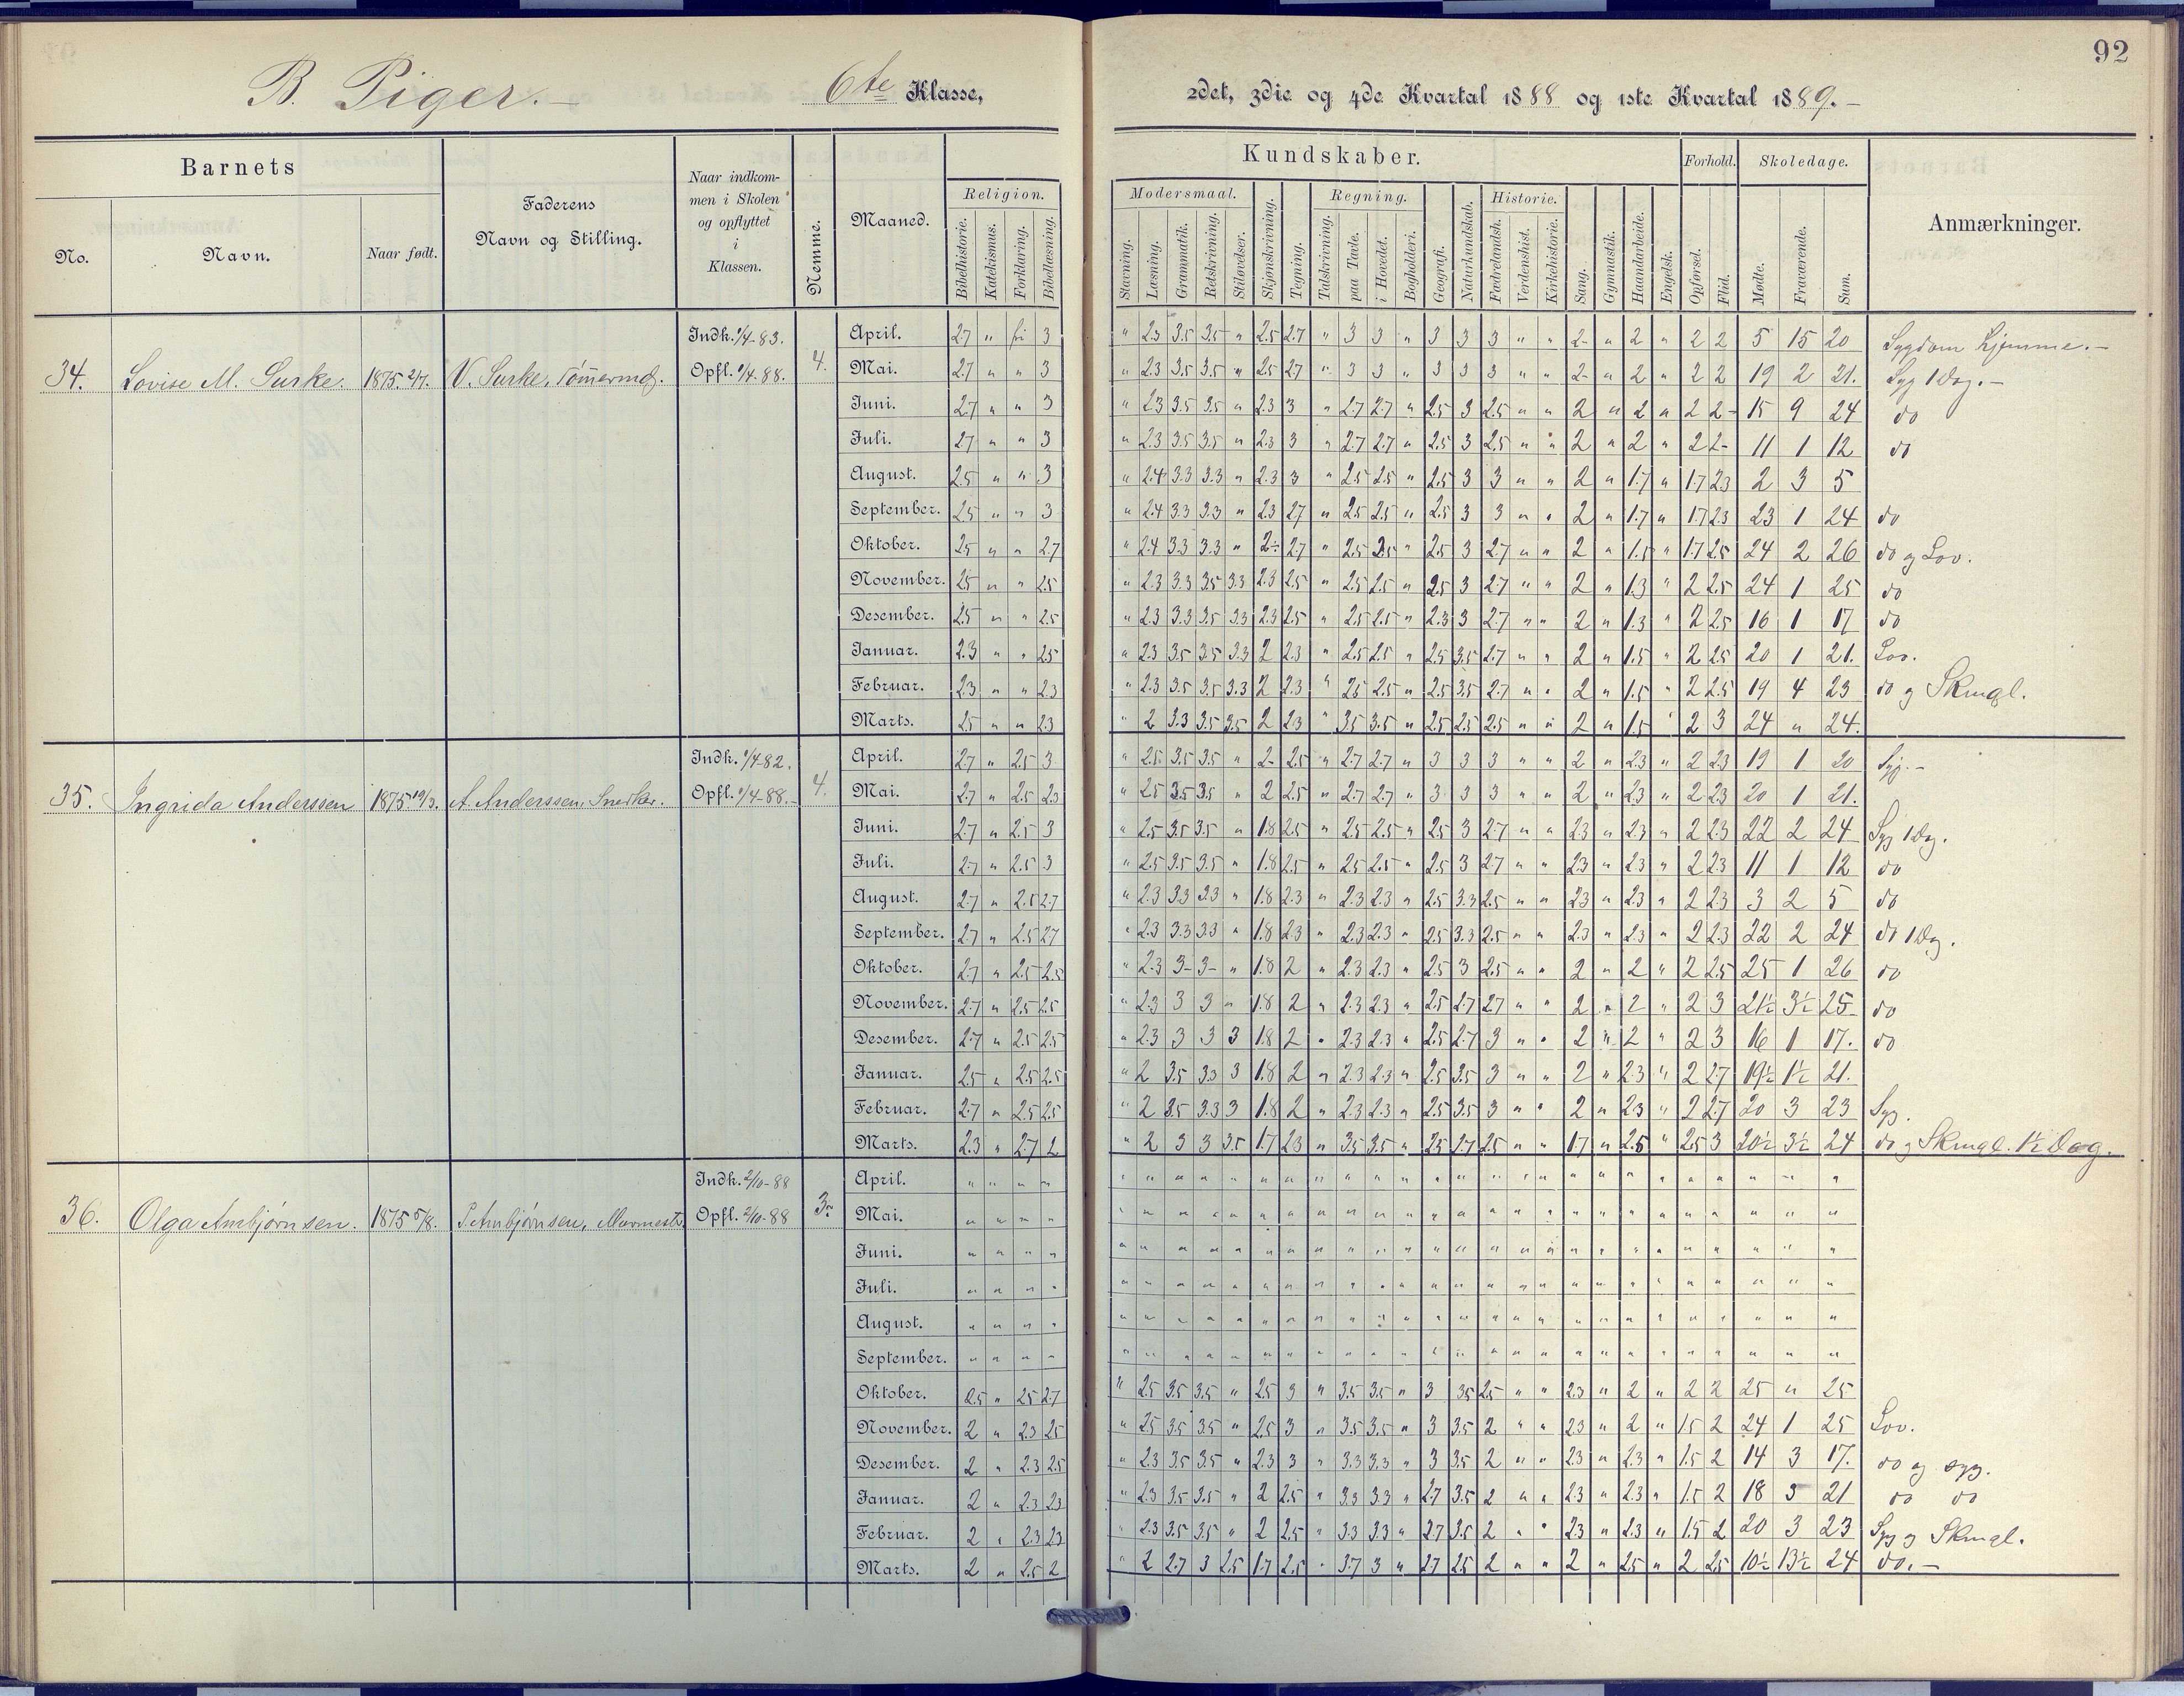 92
B. Piger.
6te Klasse,
2det, 3die og 4de Kvartal 1888 og 1ste Kvartal 1889.
Barnets
No.
Navn.
Naar født.
Faderens
Navn og Stilling.
Naar indkom-
men i Skolen
og opflyttet
i
Klassen.
Nemme.
Maaned.
Religion.
Bibelhistorie.
Katekismus.
Forklaring.
Bibellæsning.
Kundskaber.
Modersmaal.
Stavning.
Læsning.
Grammatik.
Retskrivning.
Stiløvelser.
Skjønskrivning.
Tegning.
Regning.
Talskrivning.
paa Tavle.
i Hovedet.
Bogholderi.
Geografi.
Naturkundskab.
Historie.
Fædrelandsk.
Verdenshist.
Kirkehistorie.
Sang.
Gymnastik.
Haandarbeide.
Engelsk.
Forhold.
Opførsel.
Flid.
Skoledage.
Mødte.
Fraværende.
Sum.
Anmærkninger.
34. Lovise M. Surke. 1875 2/7. V. Surke, Tømermd. Indk. 1/4-83. Opfl. 1/4-88. 4.
April. 2.7 " fri 3 " 2.3 3.5 3.5 " 2.5 2.7 " 3 3 " 3 3 3 " " 2- " 2 " 2 2 5 15 20 Sygdom hjemme.-
Mai. 2.7 " " 3 " 2.3 3.5 3.5 " 2.5 2.7 " 3 3 " 3 3 3 " " 2- " 2 " 2 2 19 2 21. Syg 1 Dag.-
Juni. 2.7 " " 3 " 2.3 3.5 3.5 " 2.3 3 " 2.7 2.7 " 2.5 3 2.5 " " 2 " 2 " 2 2- 15 9 24 do
Juli. 2.7 " " 3 " 2.3 3.5 3.5 " 2.3 3 " 2.7 2.7 " 2.5 3 2.5 " " 2 " 2 " 2 2- 11 1 12 do
August. 2.5 " " 3 " 2.4 3.3 3.3 " 2.3 3 " 2.5 2.5 " 2.5 3 3 " " 2 " 1.7 " 1.7 2.3 2 3 5
September. 2.5 " " 3 " 2.4 3.3 3.3 " 2.3 2.7 " 2.5 2.5 " 2.5 3 3 " " 2 " 1.7 " 1.7 2.3 23 1 24 do
Oktober. 2.5 " " 2.7 " 2.4 3.3 3.3 " 2÷ 2.7 " 2.5 2.5 " 2.5 3 2.7 " " 2 " 1.5 " 1.7 2.5 24 2 26 do og Lov.
November. 2.5 " " 2.5 " 2.3 3.3 3.5 3.3 2.3 2.5 " 2.5 2.5 " 2.5 3 2.7 " " 2 " 1.3 " 2 2.5 24 1 25 do
Desember. 2.5 " " 2.5 " 2.3 3.3 3.5 3.3 2.3 2.5 " 2.5 2.5 " 2.3 3 2.7 " " 2 " 1.3 " 2 2.5 16 1 17 do
Januar. 2.3 " " 2.5 " 2.3 3.5 3.5 3.3 2 2.3 " 2.5 2.5 " 2.5 3.5 2.7 " " 2 " 1.5 " 2 2.5 20 1 21. Lov.
Februar. 2.3 " " 2.3 " 2.3 3.5 3.5 3.3 2 2.3 " 2.5 2.5 " 2.5 3.5 2.7 " " 2 " 1.5 " 2 2.5 19 4 23 do og Skmgl.
Marts. 2.5 " " 2.3 " 2 3.3 3.5 3.5 2 2.3 " 3.5 3.5 " 2.5 2.5 2.5 " " 2 " 1.5 " 2 3 24 " 24.
35. Ingrida Anderssen 1875 19/3. A. Anderssen, Snedker. Indk. 1/4-82. Opfl. 1/4-88.- 4.
April. 2.7 " 2.5 3 " 2.5 3.5 3.5 " 2- 2.5 " 2.7 2.7 " 3 3 3 " " 2 " 2.3 " 2 2.3 19 1 20 Syg.-
Mai. 2.7 " 2.5 2.3 " 2.5 3.5 3.5 " 2 2.5 " 2.7 2.7 " 3 3 3 " " 2 " 2.3 " 2 2.3 20 1 21.
Juni. 2.7 " 2.5 3 " 2.5 3.5 3.5 " 1.8 2.5 " 2.5 2.5 " 2.5 3 2.7 " " 2.3 " 2.3 " 2 2.3 22 2 24 Syg 1 Dag.
Juli. 2.7 " 2.5 3 " 2.5 3.5 3.5 " 1.8 2.5 " 2.5 2.5 " 2.5 3 2.7 " " 2.3 " 2.3 " 2 2.3 11 1 12 do
August. 2.7 " 2.5 2.7 " 2.3 3.3 3.3 " 1.8 2.3 " 2.3 2.3 " 2.5 3.3 2.5 " " 2.3 " 2.3 " 2 2.3 3 2 5 do
September. 2.7 " 2.5 2.7 " 2.3 3.3 3.3 " 1.8 2.3 " 2.3 2.3 " 2.5 3.3 2.5 " " 2.3 " 2.3 " 2 2.3 22 2 24 do 1 Dag.
Oktober. 2.7 " 2.5 2.5 " 2.3 3- 3- " 1.8 2 " 2.3 2.3 " 2.5 3 2.5 " " 2 " 2 " 2 2.5 25 1 26 do
November. 2.7 " 2.5 2.5 " 2.3 3 3 " 1.8 2 " 2.3 2.3 " 2.5 2.7 2.7 " " 2 " 2 " 2 3 21½ 3½ 25 do
Desember. 2.7 " 2.5 2.5 " 2.3 3 3 3 1.8 2 " 2.3 2.3 " 2.5 2.7 3 " " 2 " 2 " 2 3 16 1 17. do
Januar. 2.5 " 2.5 2.5 " 2 3.5 3.3 3 1.8 2 " 2.3 2.3 " 2.5 3.5 3 " " 2 " 2.3 " 2 2.7 19½ 1½ 21.
Februar. 2.7 " 2.5 2.5 " 2 3.5 3.3 3 1.8 2 " 2.3 2.3 " 2.5 3.5 3 " " 2 " 2.3 " 2 2.7 20 3 23 Syg.
Marts. 2.3 " 2.7 2 " 2 3 3 3.5 1.7 2.3 " 3.5 3.5 " 2.5 2.7 2.5 " " 1.7 " 2.5 " 2.5 3 20½ 3½ 24 do og Skmgl. 1½ Dag.
36. Olga Ambjørnsen. 1875 5/8. P. Ambjørnsen, Murmestr. Indk. 2/10-88 Opfl. 2/10-88 3.
April. " " " " " " " " " " " " " " " " " " " " " " " " " " " " "
Mai. " " " " " " " " " " " " " " " " " " " " " " " " " " " " "
Juni. " " " " " " " " " " " " " " " " " " " " " " " " " " " " "
Juli. " " " " " " " " " " " " " " " " " " " " " " " " " " " " "
August. " " " " " " " " " " " " " " " " " " " " " " " " " " " " "
September. " " " " " " " " " " " " " " " " " " " " " " " " " " " " "
Oktober. 2.5 " 2.5 2.7 " 2.5 3.5 3.5 " 2.5 3 " 3.5 3.5 " 3 3.5 2.5 " " 2.3 " 2 " 2 2 25 " 25
November. 2 " 2.3 2.5 " 2.5 3.5 3.5 " 2.5 3 " 3.5 3.5 " 3 3.5 2 " " 2.3 " 2 " 1.5 2 24 1 25 Lov.
Desember. 2 " 2.3 2.5 " 2.3 3.5 3.5 " 2.3 3 " 3.3 3.3 " 3 3.5 2 " " 2.3 " 2.3 " 1.5 2 14 3 17. do og syg.
Januar. 2 " 2.3 2.3 " 2.3 3.5 3.5 " 2 2.5 " 3.3 3.3 " 2.7 3.5 2 " " 2.3 " 2.3 " 1.5 2 18 3 21 do do
Februar. 2 " 2.3 2.3 " 2.3 3.5 3.5 " 2 2.5 " 3.3 3.3 " 2.7 3.5 2 " " 2.3 " 2.3 " 1.5 2 20 3 23 Syg og Skmgl.
Marts. 2 " 2.5 2 " 2 2.7 3 2.5 1.7 2.5 " 3.7 3 " 2.7 2.5 2 " " 2 " 2.5 " 2 2.5 10½ 13½ 24 do.-